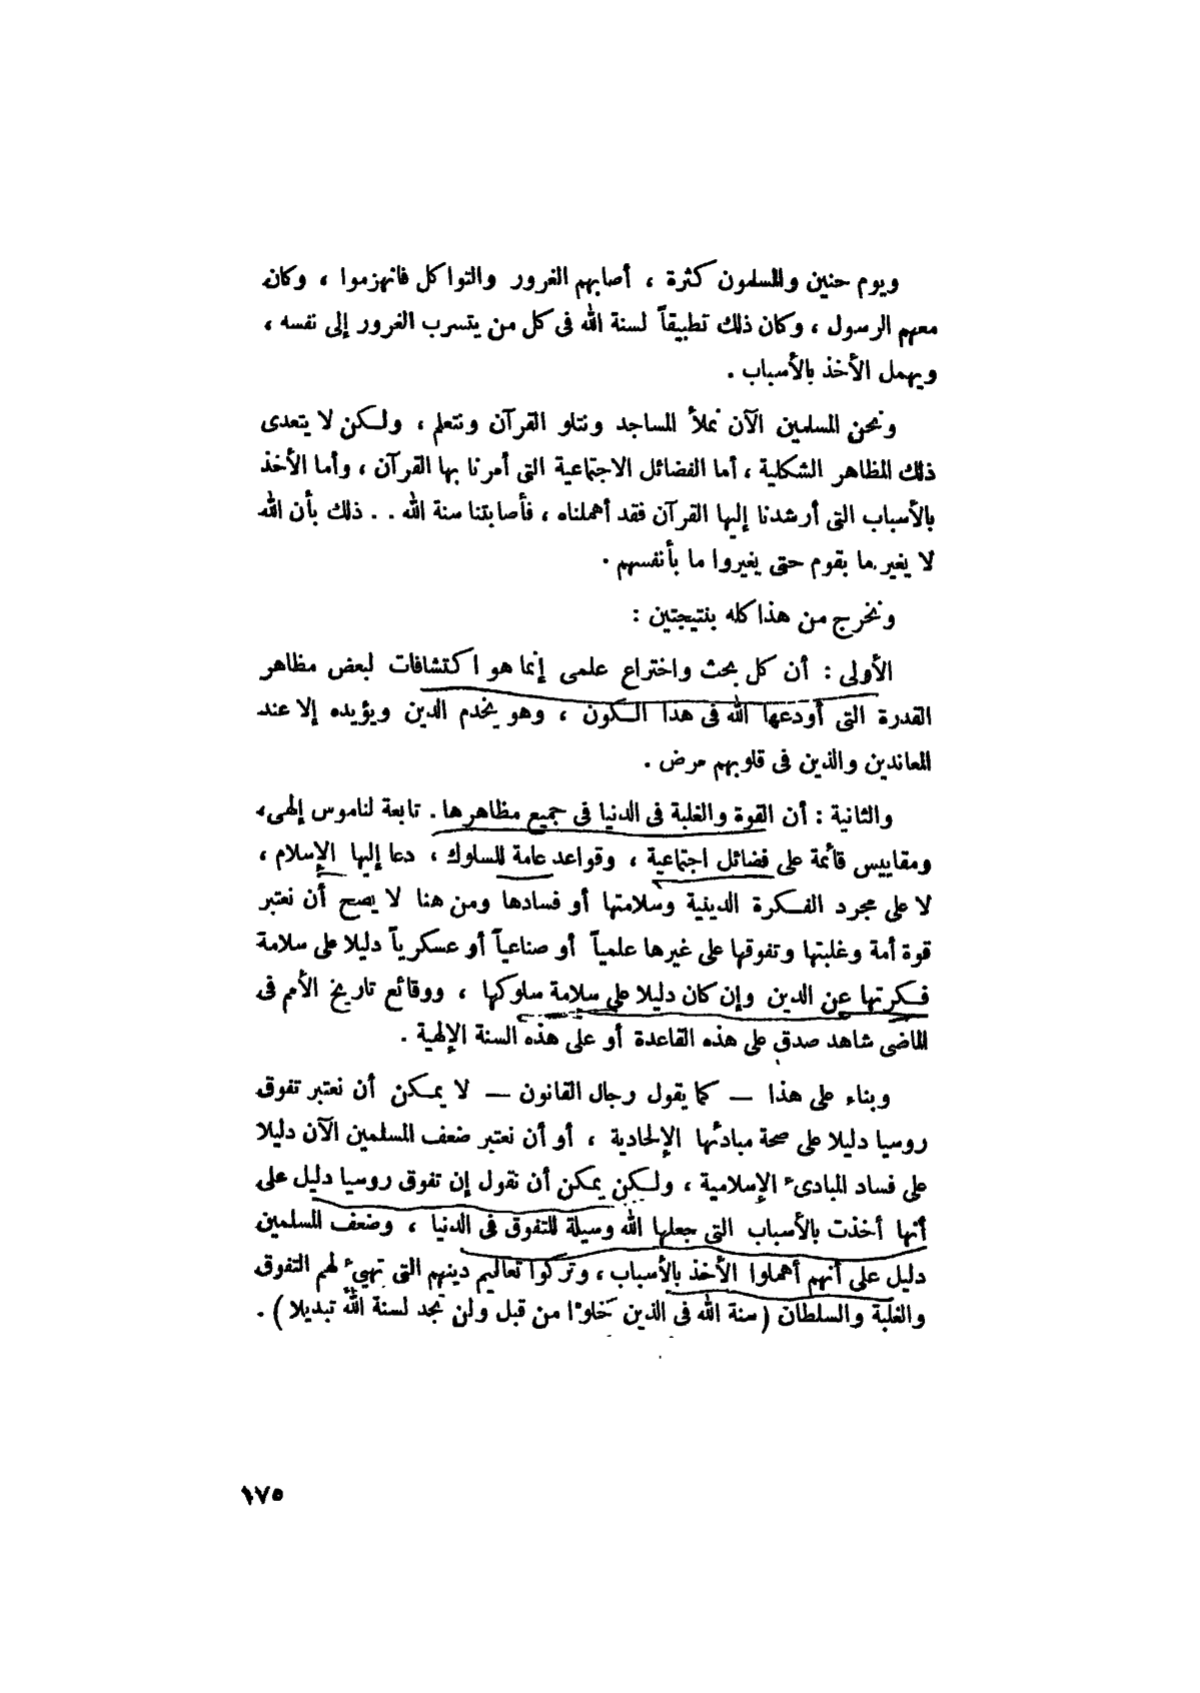 ويوم حنين والمسلمون كثرة ، أصابهم الغرور والتواكل فانهزموا ، وكان
معهم الرسول ، وكان ذلك تطبيقاً لسنة الله فى كل من يتسرب الغرور إلى نفسه ،
ويهمل الأخذ بالأسباب .
ونحن المسلمين الآن نملأ المساجد ونتلو القرآن ونتعلم ، ولكن لا يتعدى
ذلك المظاهر الشكلية ، أما الفضائل الاجتماعية التى أمرنا بها القرآن ، وأما الأخذ
بالأسباب التى أرشدنا إليها القرآن فقد أهملناه ، فأصابتنا سنة الله . . ذلك بأن الله
لا يغير ما بقوم حتى يغيروا ما بأنفسهم .
ونخرج من هذا كله بنتيجتين :
الأولى : أن كل بحث واختراع علمى إنما هو اكتشافات لبعض مظاهر
القدرة التى أودعها الله فى هذا الكون ، وهو يخدم الدين ويؤيده إلا عند
المعاندين والذين فى قلوبهم مرض .
والثانية : أن القوة والغلبة فى الدنيا فى جميع مظاهرها . تابعة لناموس إلهى ،
ومقاييس قائمة على فضائل اجتماعية ، وقواعد عامة للسلوك ، دعا إليها الإسلام ،
لا على مجرد الفكرة الدينية وسلامتها أو فسادها ومن هنا لا يصح أن نعتبر
قوة أمة وغلبتها وتفوقها على غيرها علمياً أو صناعياً أو عسكرياً دليلا على سلامة
فكرتها عن الدين وإن كان دليلا على سلامة سلوكها ، ووقائع تاريخ الأمم فى
الماضى شاهد صدق على هذه القاعدة أو على هذه السنة الإلهية .
وبناء على هذا — كما يقول رجال القانون — لا يمكن أن نعتبر تفوق
روسيا دليلا على صحة مبادئها الإلحادية ، أو أن نعتبر ضعف المسلمين الآن دليلا
على فساد المبادىء الإسلامية ، ولكن يمكن أن نقول إن تفوق روسيا دليل على
أنها أخذت بالأسباب التى جعلها الله وسيلة للتفوق فى الدنيا ، وضعف المسلمين
دليل على أنهم أهملوا الأخذ بالأسباب ، وتركوا تعاليم دينهم التى تهيىء لهم التفوق
والغلبة والسلطان ( سنة الله فى الذين خَلَوْا من قبل ولن تجد لسنة الله تبديلا ) .
١٧٥